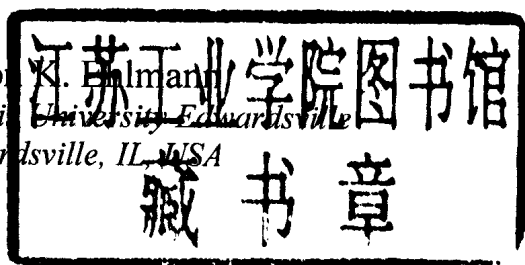 江苏工业学院图书馆
K. Ehlmann
University Edwardsville
rdsville, IL, USA
藏书章